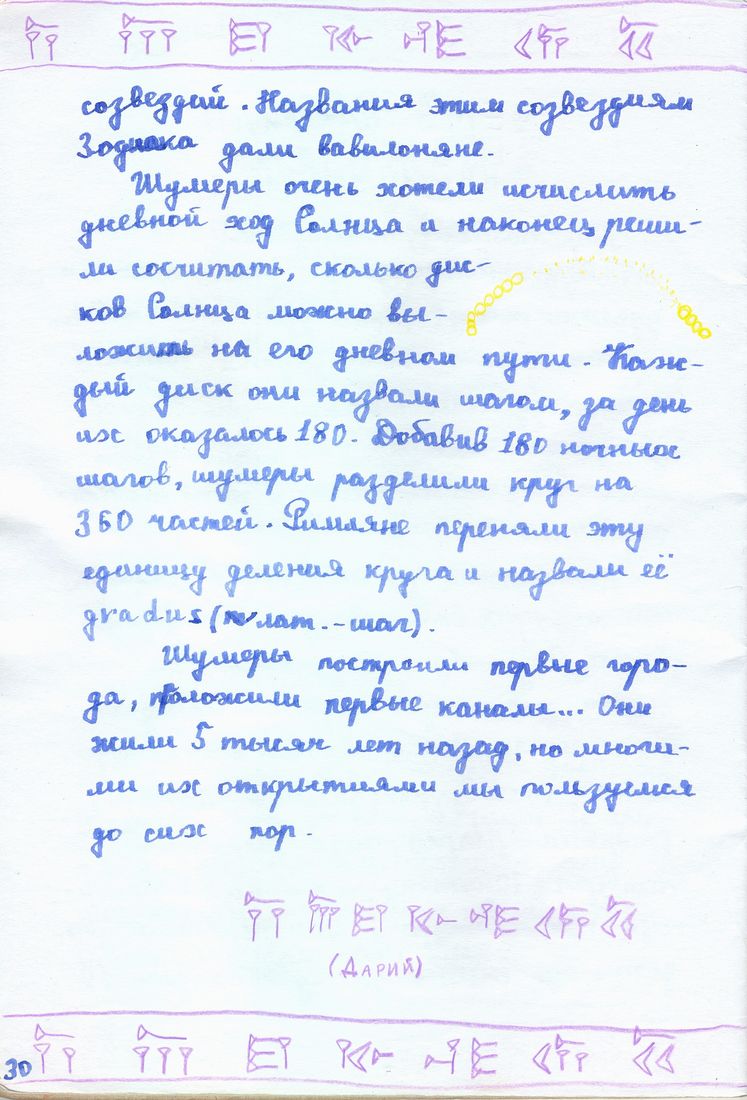 𐎭 𐎠 𐎼 𐎹 𐎺 𐎢 𐏁
созвездий. Названия этим созвездиям
Зодиака дали вавилоняне.
Шумеры очень хотели исчислить
дневной ход Солнца и наконец реши-
ли сосчитать, сколько дис-
ков Солнца можно вы-
ложить на его дневном пути. Каж-
дый диск они назвали шагом, за день
их оказалось 180. Добавив 180 ночных
шагов, шумеры разделили круг на
360 частей. Римляне переняли эту
единицу деления круга и назвали её
gradus (лат. - шаг).
Шумеры построили первые горо-
да, проложили первые каналы... Они
жили 5 тысяч лет назад, но многи-
ми их открытиями мы пользуемся
до сих пор.
𐎭 𐎠 𐎼 𐎹 𐎺 𐎢 𐏁
(ДАРИЙ)
𐎭 𐎠 𐎼 𐎹 𐎺 𐎢 𐏁
30